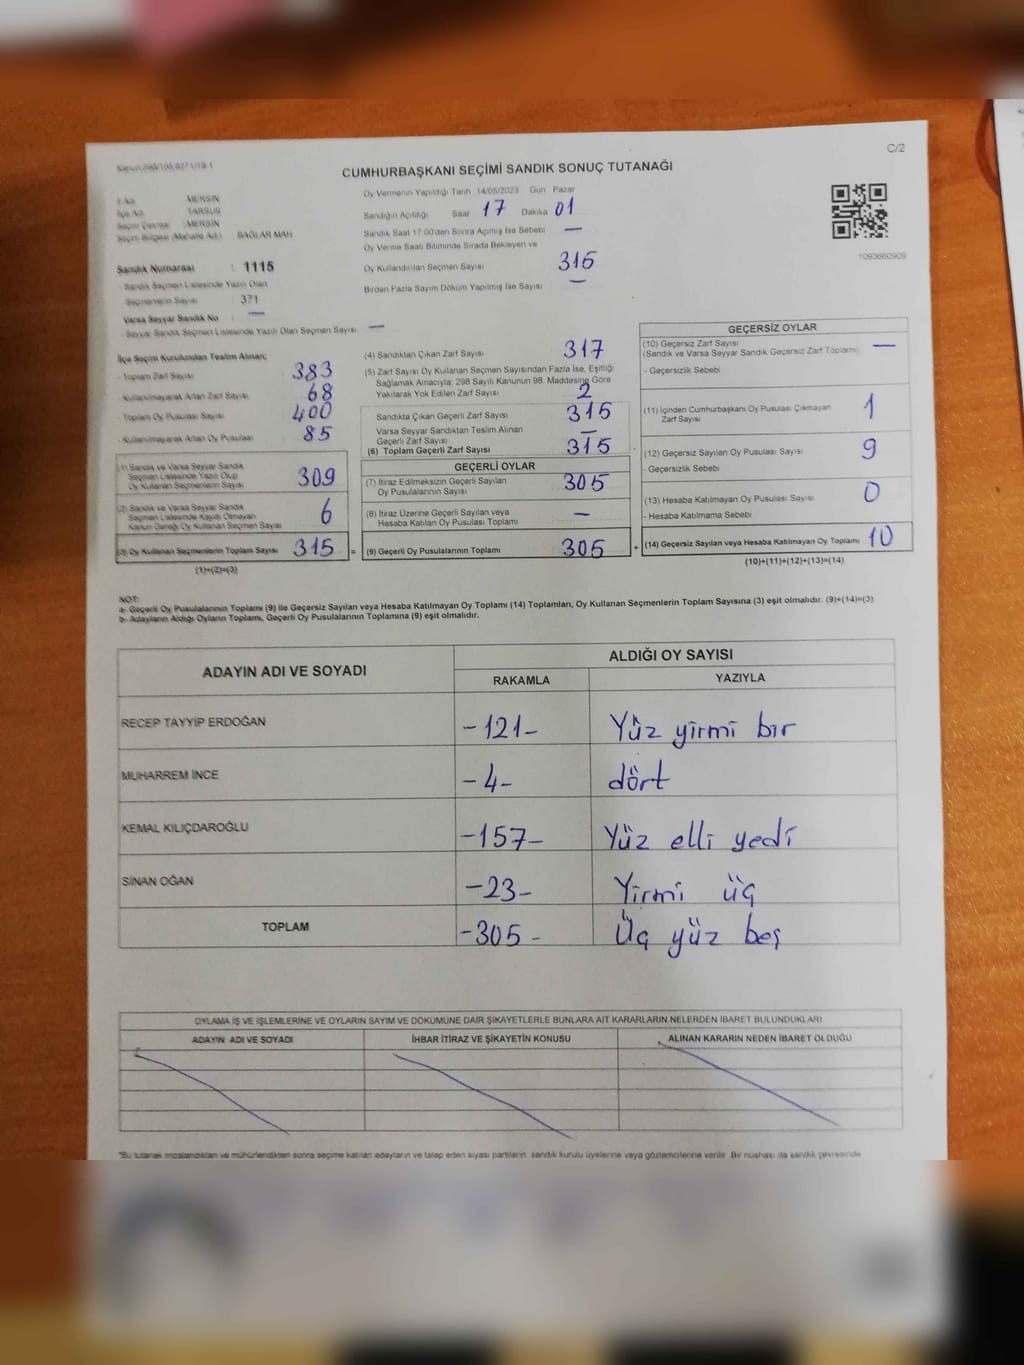 C/2
CUMHURBAŞKANI SEÇİMİ SANDIK SONUÇ TUTANAĞI
İl Adı MERSİN
İlçe Adı TARSUS
Seçim Çevresi MERSİN
Seçim Bölgesi (Mahalle Adı) BAĞLAR MAH
Sandık Numarası : 1115
- Sandık Seçmen Listesinde Yazılı Olan
Seçmenlerin Sayısı : 371
Varsa Seyyar Sandık No : —
- Seyyar Sandık Seçmen Listesinde Yazılı Olan Seçmen Sayısı : —
Oy Vermenin Yapıldığı Tarih 14/05/2023 Gün Pazar
Sandığın Açıldığı Saat 17 Dakika 01
Sandık Saat 17:00'den Sonra Açılmış İse Sebebi —
Oy Verme Saati Bitiminde Sırada Bekleyen ve
Oy Kullandırılan Seçmen Sayısı 315
Birden Fazla Sayım Döküm Yapılmış İse Sayısı —
1093660909
İlçe Seçim Kurulundan Teslim Alınan;
- Toplam Zarf Sayısı 383
- Kullanılmayarak Artan Zarf Sayısı 68
- Toplam Oy Pusulası Sayısı 400
- Kullanılmayarak Artan Oy Pusulası 85
(1) Sandık ve Varsa Seyyar Sandık
Seçmen Listesinde Yazılı Olup
Oy Kullanan Seçmenlerin Sayısı 309
(2) Sandık ve Varsa Seyyar Sandık
Seçmen Listesinde Kayıtlı Olmayan
Kanun Gereği Oy Kullanan Seçmen Sayısı 6
(3) Oy Kullanan Seçmenlerin Toplam Sayısı 315 =
(1)+(2)=(3)
(4) Sandıktan Çıkan Zarf Sayısı 317
(5) Zarf Sayısı Oy Kullanan Seçmen Sayısından Fazla İse, Eşitliği
Sağlamak Amacıyla, 298 Sayılı Kanunun 98. Maddesine Göre
Yakılarak Yok Edilen Zarf Sayısı 2
Sandıkta Çıkan Geçerli Zarf Sayısı 315
Varsa Seyyar Sandıktan Teslim Alınan
Geçerli Zarf Sayısı —
(6) Toplam Geçerli Zarf Sayısı 315
GEÇERLİ OYLAR
(7) İtiraz Edilmeksizin Geçerli Sayılan
Oy Pusulalarının Sayısı 305
(8) İtiraz Üzerine Geçerli Sayılan veya
Hesaba Katılan Oy Pusulası Toplamı —
(9) Geçerli Oy Pusulalarının Toplamı 305 +
GEÇERSİZ OYLAR
(10) Geçersiz Zarf Sayısı —
(Sandık ve Varsa Seyyar Sandık Geçersiz Zarf Toplamı)
- Geçersizlik Sebebi
(11) İçinden Cumhurbaşkanı Oy Pusulası Çıkmayan
Zarf Sayısı 1
(12) Geçersiz Sayılan Oy Pusulası Sayısı 9
- Geçersizlik Sebebi
(13) Hesaba Katılmayan Oy Pusulası Sayısı 0
- Hesaba Katılmama Sebebi
(14) Geçersiz Sayılan veya Hesaba Katılmayan Oy Toplamı 10
(10)+(11)+(12)+(13)=(14)
NOT:
a- Geçerli Oy Pusulalarının Toplamı (9) ile Geçersiz Sayılan veya Hesaba Katılmayan Oy Toplamı (14) Toplamları, Oy Kullanan Seçmenlerin Toplam Sayısına (3) eşit olmalıdır. (9)+(14)=(3)
b- Adayların Aldığı Oyların Toplamı, Geçerli Oy Pusulalarının Toplamına (9) eşit olmalıdır.
ADAYIN ADI VE SOYADI ALDIĞI OY SAYISI
RAKAMLA YAZIYLA
RECEP TAYYİP ERDOĞAN -121- Yüz yirmi bir
MUHARREM İNCE -4- dört
KEMAL KILIÇDAROĞLU -157- Yüz elli yedi
SİNAN OĞAN -23- Yirmi üç
TOPLAM -305- Üç yüz beş
OYLAMA İŞ VE İŞLEMLERİNE VE OYLARIN SAYIM VE DÖKÜMÜNE DAİR ŞİKAYETLERLE BUNLARA AİT KARARLARIN NELERDEN İBARET BULUNDUKLARI
ADAYIN ADI VE SOYADI İHBAR İTİRAZ VE ŞİKAYETİN KONUSU ALINAN KARARIN NEDEN İBARET OLDUĞU
*Bu tutanak imzalandıktan ve mühürlendikten sonra seçime katılan adayların ve talep eden siyasi partilerin sandık kurulu üyelerine veya gözlemcilerine verilir. Bir nüshası da sandık çevresinde